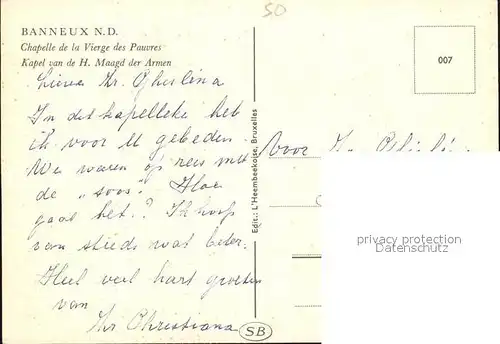 50
BANNEUX N.D.
Chapelle de la Vierge des Pauvres
Kapel van de H. Maagd der Armen
007
Lieve Zr. Ghislina
In dit kapelleke heb
ik voor U gebeden.
We waren op reis met
de "soos". Hoe
gaat het? Ik hoop
van steeds wat beter.
Heel veel hart. groeten
van
Zr Christiana
Edit.: L'Heembeekoise, Bruxelles
Voor Zr.
privacy protection
MARKENLEXIKON.com
SB